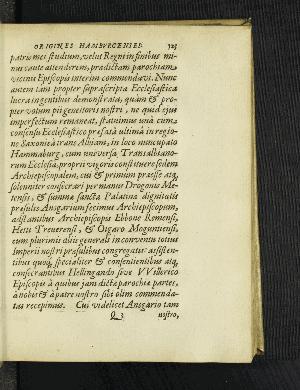 ORIGINES HAMBURGENSES. 125
patris mei studium, velut Regni in finibus mi-
nus caute attenderem, prædictam parochiam
vicinis Episcopis interim commendavi. Nunc
autem tam propter suprascripta Ecclesiastica
lucra in gentibus demonstrata, quàm & pro-
pter votum pii genitoris nostri, ne quid ejus
imperfectum remaneat, statuimus unà cum
consensu Ecclesiastico præfatâ ultimâ in regio-
ne Saxoniæ trans Albiam, in loco nuncupato
Hammaburg, cum universa Transalbiano-
rum Ecclesia, proprii vigoris constituere sedem
Archiepiscopalem, cui & primum præesse atq;
solenniter consecrari per manus Drogonis Me-
tensis, & summæ sanctæ Palatinæ dignitatis
præsulis Ansgarium fecimus Archiepiscopum,
adstantibus Archiepiscopis Ebbone Remensi,
Hetti Treverensi, & Otgaro Moguntensi,
cum plurimis aliis generali in conventu totius
Imperii nostri præsulibus congregatis: assisten-
tibus quoq; specialiter & consentientibus atq;
consecrantibus Hellingando sive VVillerico
Episcopis à quibus jam dictæ parochiæ partes,
à nobis & à patre nostro sibi olim commenda-
tas recepimus. Cui videlicet Ansgario tam
Q 3 nostro,